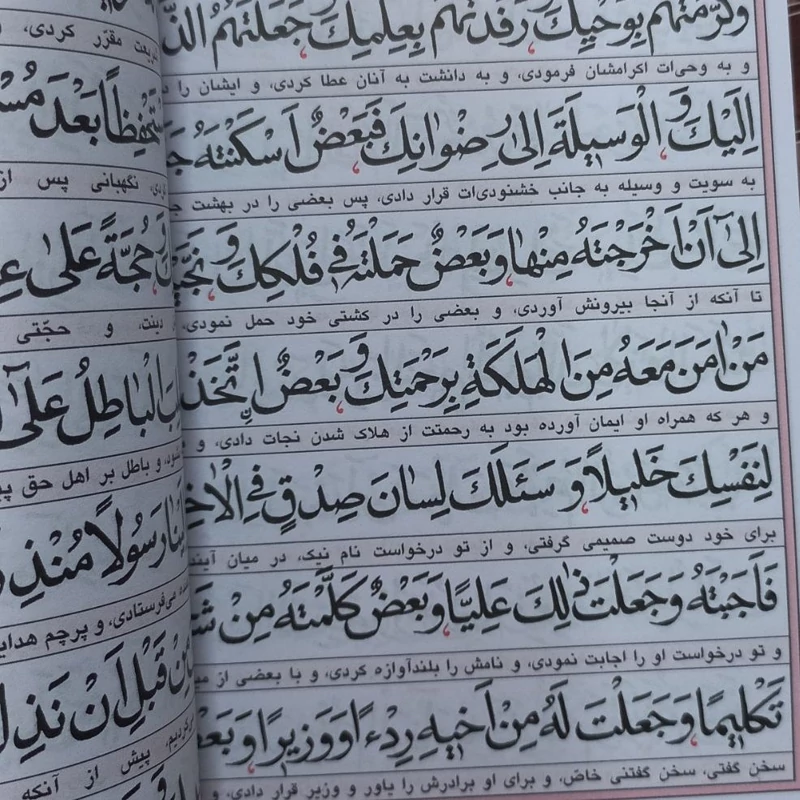 وَكَرَّمْتَهُمْ بِوَحْيِكَ وَرَفَدْتَهُمْ بِعِلْمِكَ وَجَعَلْتَهُمُ
و به وحی‌ات اکرامشان فرمودی، و به دانشت به آنان عطا کردی، و ایشان را
اِلَيْكَ وَالْوَسيلَةَ اِلى رِضْوانِكَ فَبَعْضٌ اَسْكَنْتَهُ
به سویت و وسیله به جانب خشنودی‌ات قرار دادی، پس بعضی را در بهشت
اِلى اَنْ اَخْرَجْتَهُ مِنْها وَبَعْضٌ حَمَلْتَهُ في فُلْكِكَ وَ
تا آنکه از آنجا بیرونش آوردی، و بعضی را در کشتی خود حمل نمودی،
مَنْ امَنَ مَعَهُ مِنَ الْهَلَكَةِ بِرَحْمَتِكَ وَبَعْضٌ
و هر که همراه او ایمان آورده بود به رحمتت از هلاک شدن نجات دادی، و
لِنَفْسِكَ خَليلاً وَسَئَلَكَ لِسانَ صِدْقٍ فِي
برای خود دوست صمیمی گرفتی، و از تو درخواست نام نیک، در میان
فَاَجَبْتَهُ وَجَعَلْتَ ذلِكَ عَلِيًّا وَبَعْضٌ كَلَّمْتَهُ مِنْ
و تو درخواست او را اجابت نمودی، و نامش را بلندآوازه کردی، و با بعضی از
تَكْليمًا وَجَعَلْتَ لَهُ مِنْ اَخيهِ رِدْءًا وَوَزيرًا
سخن گفتی، سخن گفتنی خاص، و برای او برادرش را یاور و وزیر قرار دادی، و
مقرّر کردی،
بَعْدَ
نگهبانی پس از
حُجَّةً عَلى
دینت، و حجّتی
الْباطِلُ عَلى
و باطل بر اهل حق
رَسُولاً
می‌فرستادی، و پرچم
قَبْلِ اَنْ
پیش از آنکه